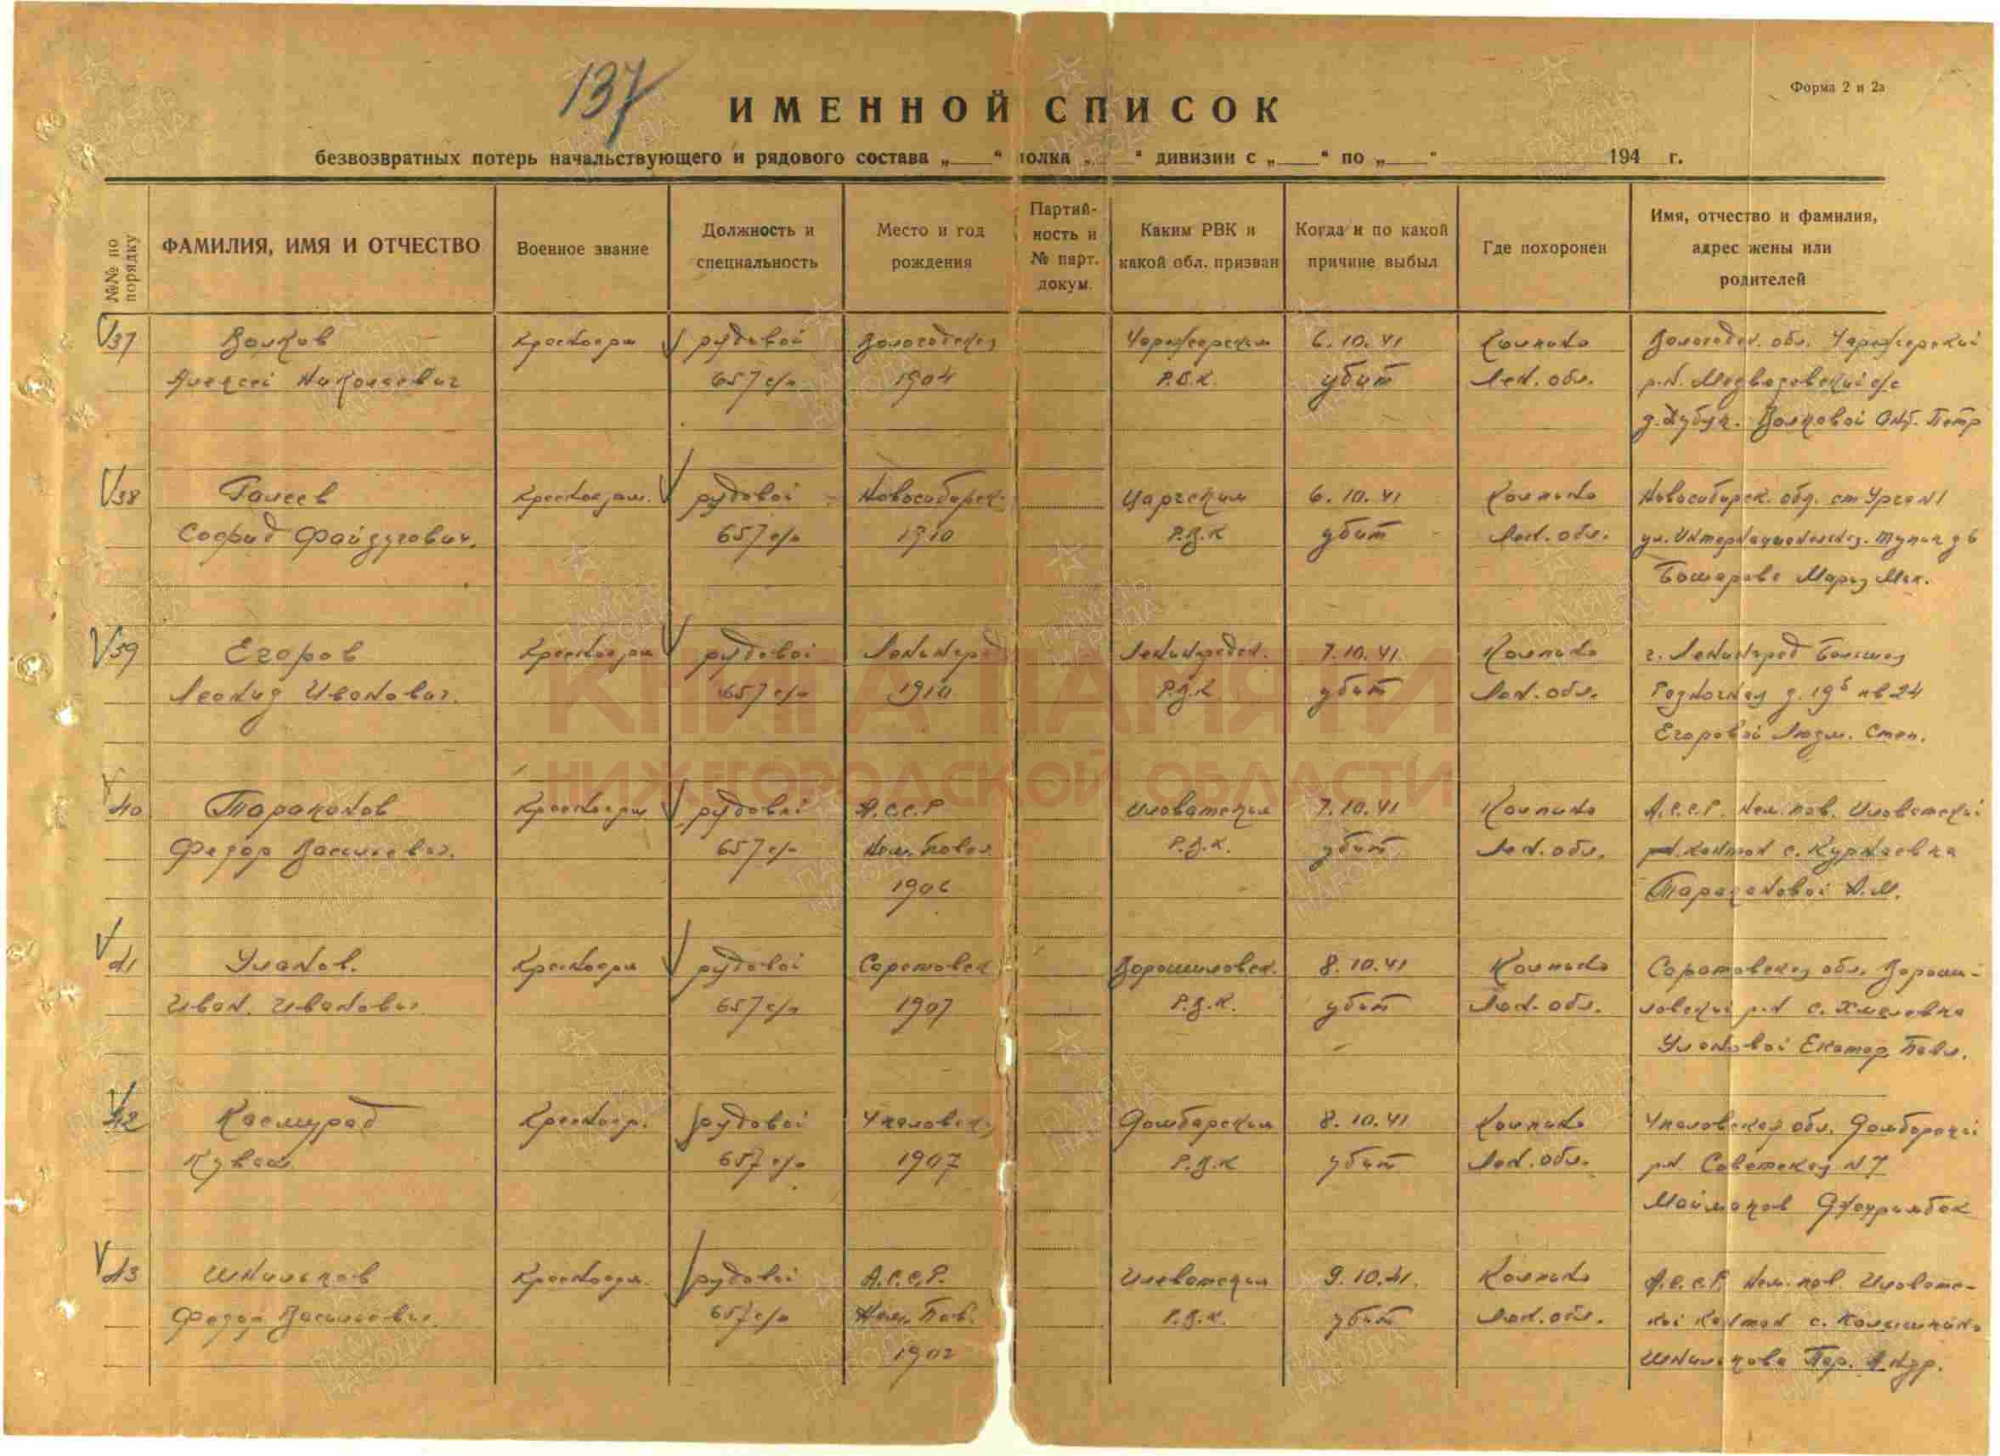 137
Форма 2 и 2а
ИМЕННОЙ СПИСОК
безвозвратных потерь начальствующего и рядового состава „___“ полка „___“ дивизии с „___“ по „___“ 194 г.
№№ по порядку
ФАМИЛИЯ, ИМЯ И ОТЧЕСТВО
Военное звание
Должность и специальность
Место и год рождения
Партийность и № парт. докум.
Каким РВК и какой обл. призван
Когда и по какой причине выбыл
Где похоронен
Имя, отчество и фамилия, адрес жены или родителей
37 Волков Красноарм рядовой Вологодская Чарозерским 6.10.41 Колпино Вологодск. обл. Чарозерский
Алексей Николаевич 657 с/п 1904 Р.В.К. убит Лен. обл. р.н. Медведовский с/с
Волковой Петр
38 Галеев Красноарм. рядовой Новосибирск. 6. 10. 41 Колпино Новосибирск. обл. ст
Файзулович. 657 с/п 1910 Р.В.К убит Лен. обл. ул. тупик д 6
39 Егоров Красноарм рядовой Ленинград Ленинградск. 7.10.41 Колпино г. Ленинград Большая
Леонид Иванович. 657 с/п 1910 Р.В.К убит Лен. обл. Разночная д. 19б кв 24
Егоровой Людм. Степ.
40 Тараканов Красноарм рядовой А.С.С.Р Иловатским 7.10.41 Колпино А.С.С.Р. Нем. пов. Иловатский
Федор Васильевич. 657 с/п Нем. Повол Р.В.К. убит Лен. обл. кантон с. Курнаевка
1906 Таракановой А.М.
41 Уланов. Красноарм рядовой Саратовск Ворошиловск. 8.10.41 Колпино Саратовская обл. Вороши-
Иван. Иванович 657 с/п 1907 Р.В.К. убит Лен. обл. ловский р.н с. Хмелевка
Улановой Екатер. Павл.
42 Касмурад Красноар. рядовой Чкаловск. Домбарским 8.10.41 Колпино Чкаловская обл. Домбарский
657 с/п 1907 Р.В.К убит Лен. обл. рн Советская N 7
43 Шпильков Красноарм. рядовой А.С.С.Р. Иловатским 9.10.41. Колпино А.С.С.Р Нем. пов. Иловатс-
Федор Васильевич. 657 с/п Нем. Пов. Р.В.К. убит Лен. обл. кий кантон с.
1902
КНИГА ПАМЯТИ
НИЖЕГОРОДСКОЙ ОБЛАСТИ
ПАМЯТЬ НАРОДА